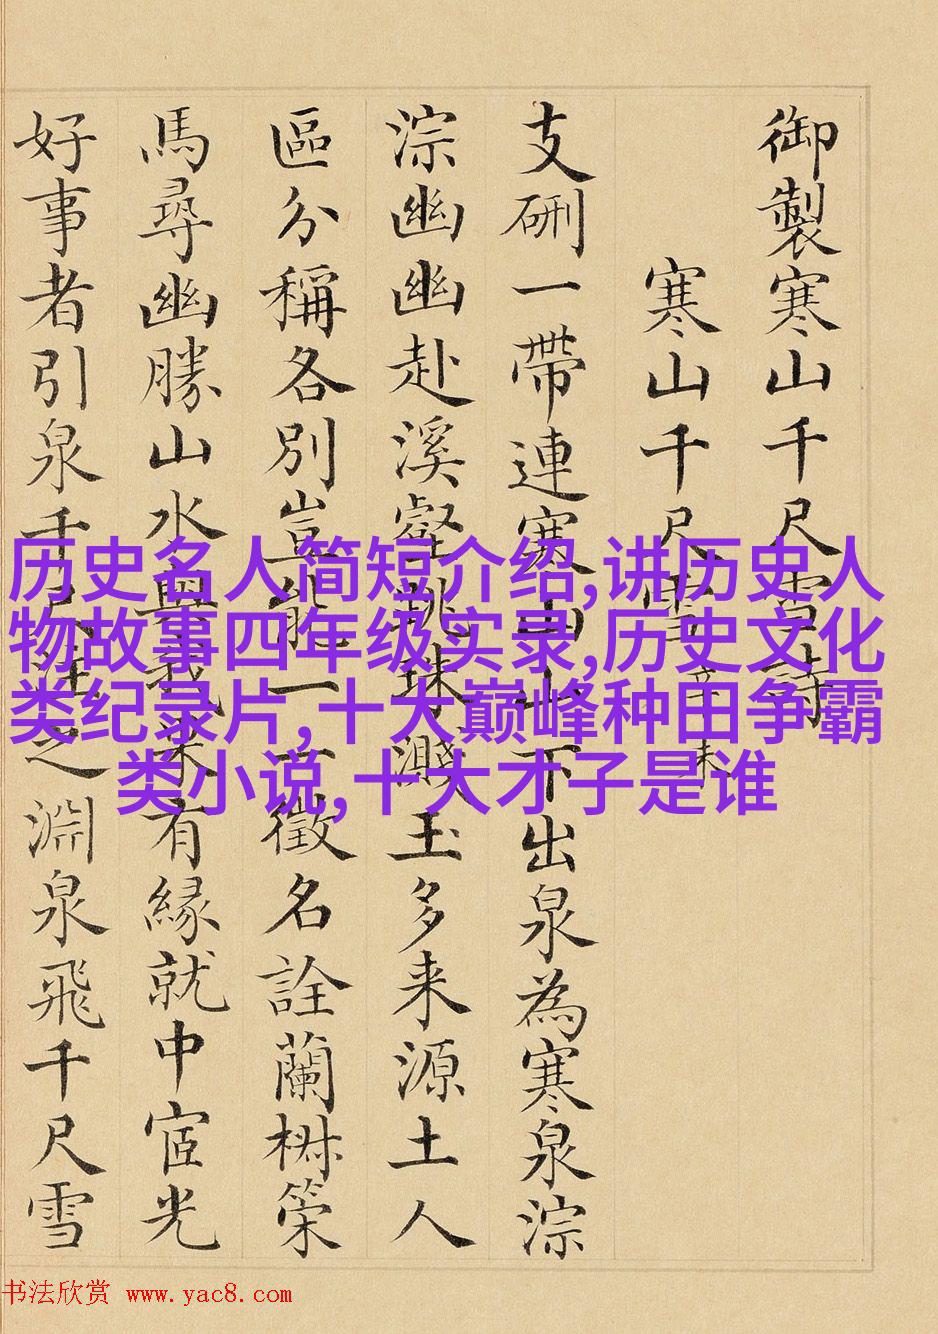 御製寒山千尺雪詩
寒山千尺雪 辛未
支硎一帶連寒山山下出泉為寒泉淙
淙幽幽赴溪壑跳珠濺玉多来源土人
區分稱各別豈能一一徵名詮蘭椒策
馬尋幽勝山水與我果有緣就中宧光
好事者引泉千尺注之淵泉飛千尺雪
历史名人简短介绍,讲历史人
物故事四年级实录,历史文化
类纪录片,十大巅峰种田争霸
类小说,十大才子是谁
书法欣赏 www.yac8.com